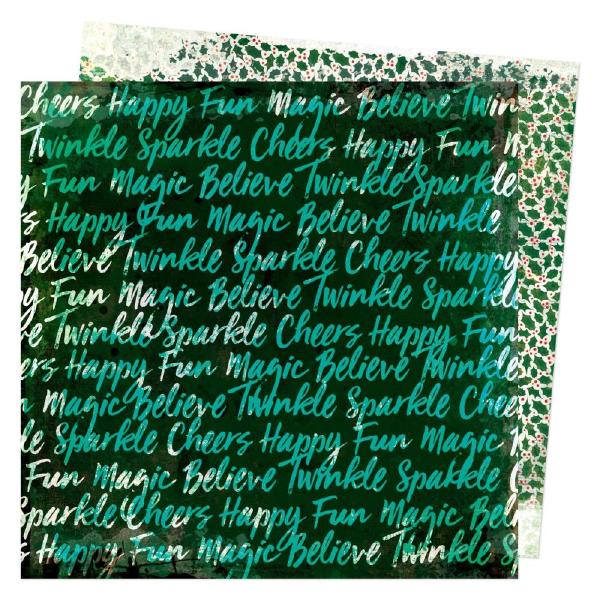 Cheers Happy Fun Magic Believe Twin
Twinkle Sparkle Cheers Happy Fun M
y Fun Magic Believe Twinkle Sparkle
s Happy Fun Magic Believe Twinkle
Believe Twinkle Sparkle Cheers Happy
y Fun Magic Believe Twinkle Sparkl
e Twinkle Sparkle Cheers Happy Fun
ers Happy Fun Magic Believe Twinkle
n Magic Believe Twinkle Sparkle Chee
le Sparkle Cheers Happy Fun Magic
Fun Magic Believe Twinkle Sparkle C
Sparkle Cheers Happy Fun Magic Bel
t Happy Fun Magic Believe Twinkle S